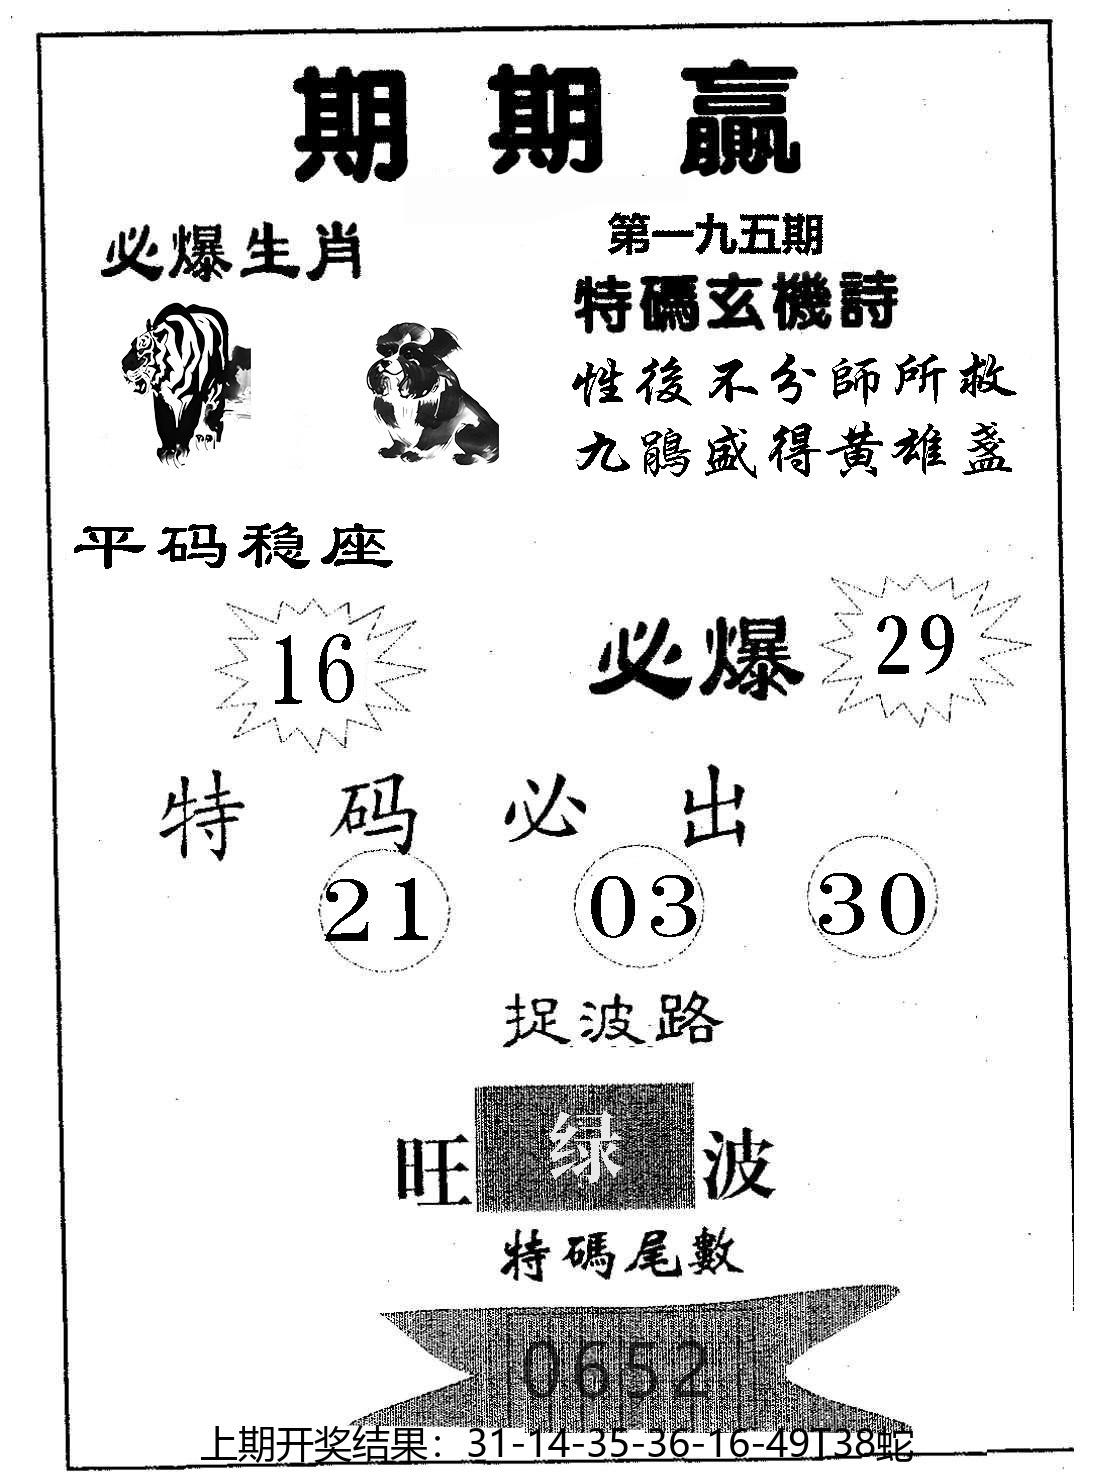 期期赢
必爆生肖
第一九五期
特碼玄機詩
性後不分師所救
九鵑盛得黄雄盏
平码稳座
16
必爆 29
特码必出
21 03 30
捉波路
旺 绿 波
特碼尾數
0652
上期开奖结果：31-14-35-36-16-49T38蛇